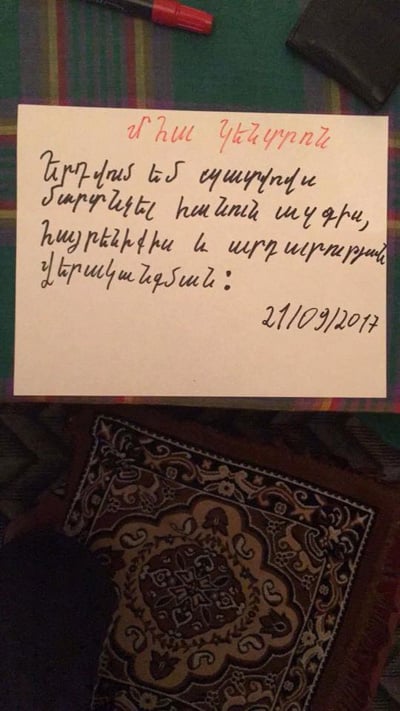 կենտրոն
Երդվում եմ պատվովս
մարտնչել հանուն ազգիս,
հայրենիքիս և արդարության
վերականգման:
21/09/2017